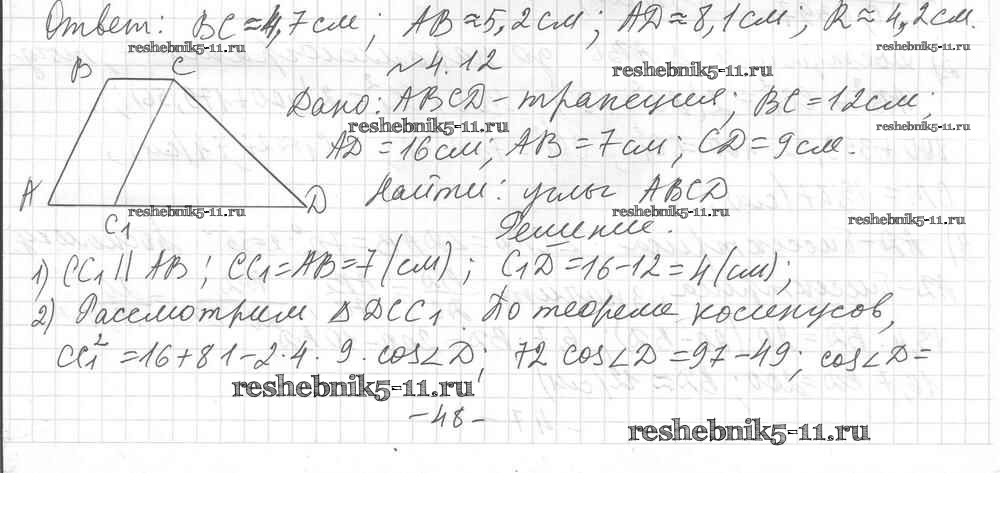 Ответ: BC≈4,7см; AB≈5,2см; AD≈8,1см; R≈4,2см.
reshebnik5-11.ru reshebnik5-11.ru
№4.12
reshebnik5-11.ru
B C
Дано: ABCD-трапеция; BC=12см;
reshebnik5-11.ru reshebnik5-11.ru
AD=16см; AB=7см; CD=9см.
A D
Найти: углы ABCD
reshebnik5-11.ru reshebnik5-11.ru reshebnik5-11.ru
C1
Решение.
1) CC1 || AB; CC1=AB=7(см); C1D=16-12=4(см);
2) Рассмотрим ΔDCC1. По теореме косинусов,
CC1²=16+81-2·4·9·cos∠D; 72 cos∠D=97-49; cos∠D=
reshebnik5-11.ru
-48-
reshebnik5-11.ru